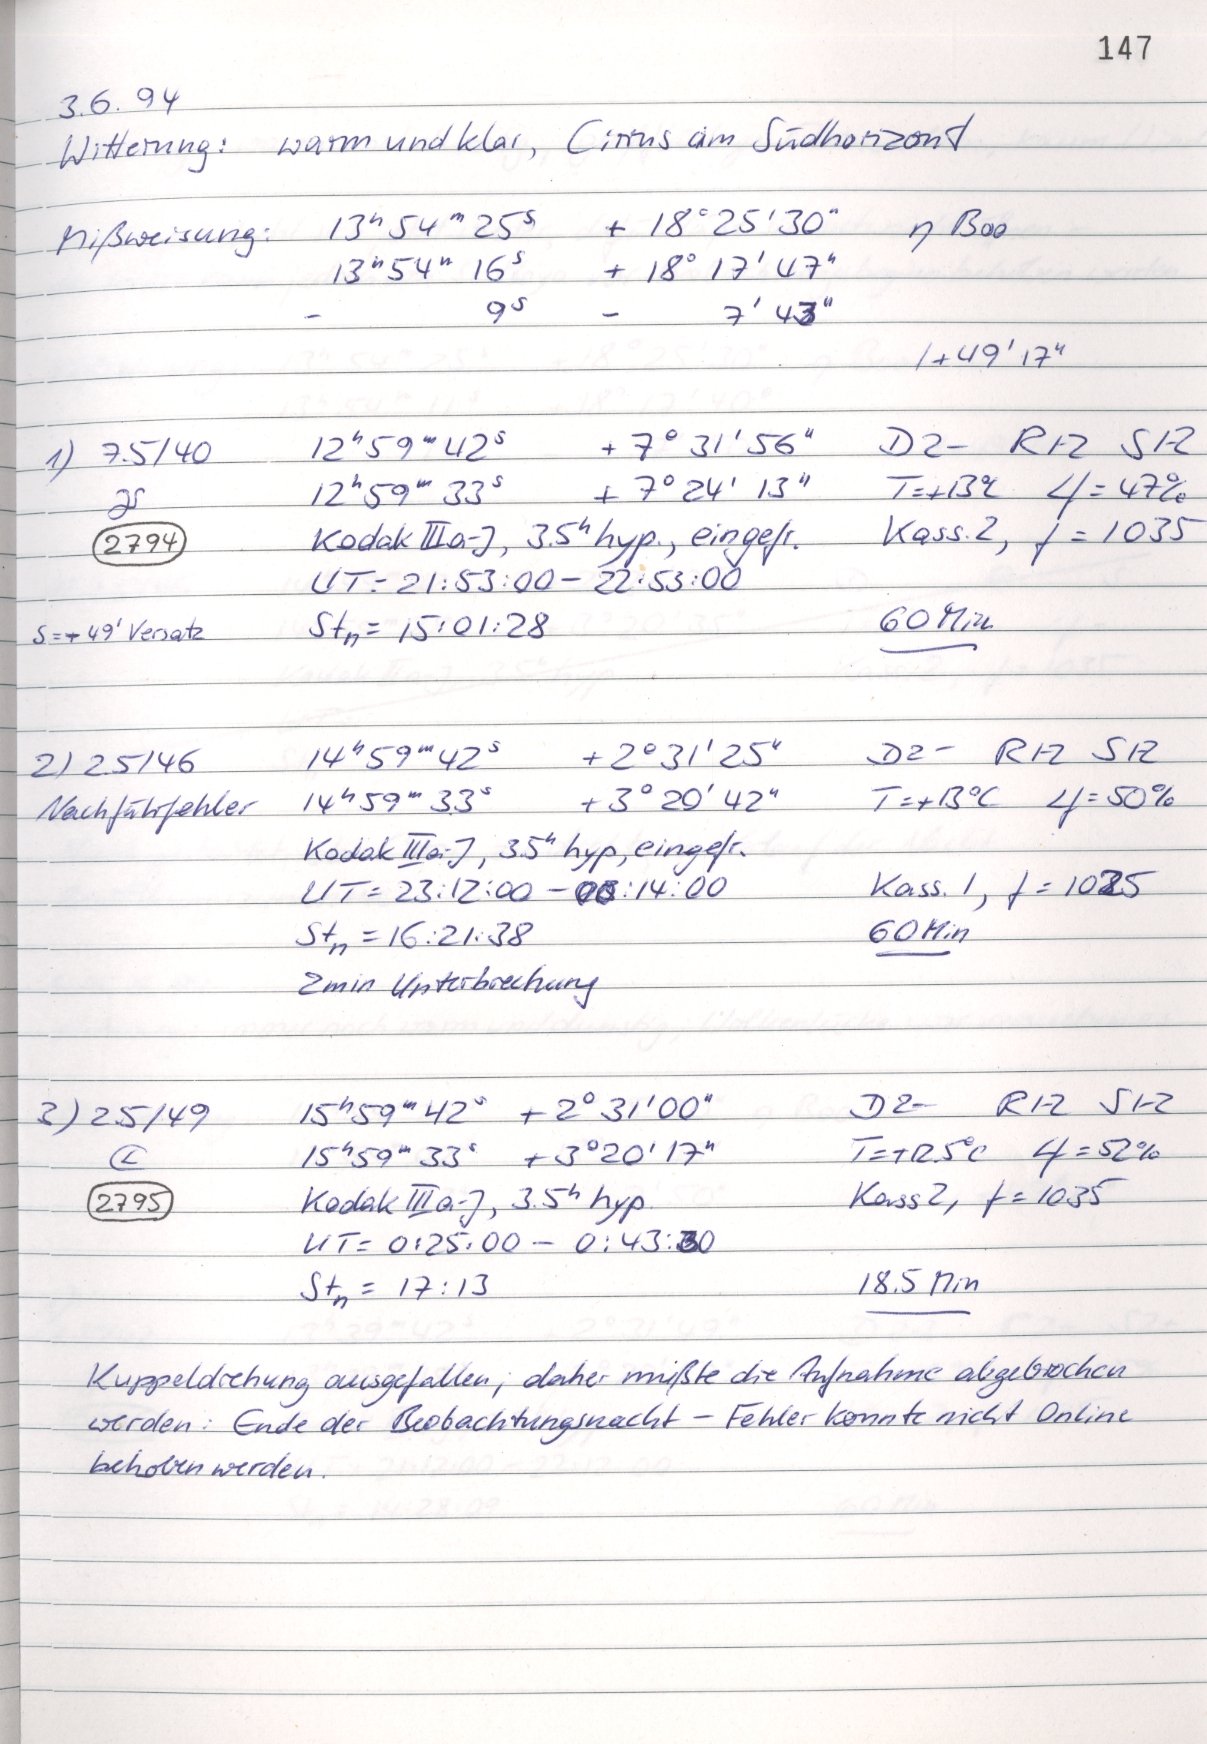 147
3.6.94
Witterung: warm und klar, Cirrus am Südhorizont
Mißweisung: 13ʰ54ᵐ25ˢ +18°25'30" η Boo
13ʰ54ᵐ16ˢ +18°17'47"
- 9ˢ - 7'43"
/+49'17"
1) 7.5/40 12ʰ59ᵐ42ˢ +7°31'56" D2- RH2 SH2
12ʰ59ᵐ33ˢ +7°24'13" T=+13°C φ=47%
2794 Kodak IIIa-J, 3.5ʰ hyp., eingefr. Kass. 2, f=1035
UT=21:53:00-22:53:00
S=+49' Versatz Stₙ=15:01:28 60 Min
2) 2.5/46 14ʰ59ᵐ42ˢ +2°31'25" D2- RH2 SH2
Nachführfehler 14ʰ59ᵐ33ˢ +3°20'42" T=+13°C φ=50%
Kodak IIIa-J, 3.5ʰ hyp, eingefr.
UT=23:12:00- :14:00 Kass. 1, f=1035
Stₙ=16:21:38 60 Min
2min Unterbrechung
3) 2.5/49 15ʰ59ᵐ42ˢ +2°31'00" D2- RH2 SH2
15ʰ59ᵐ33ˢ +3°20'17" T=+12.5°C φ=52%
2795 Kodak IIIa-J, 3.5ʰ hyp. Kass 2, f=1035
UT=0:25:00 - 0:43:30
Stₙ = 17:13 18.5 Min
Kuppeldrehung ausgefallen; daher mußte die Aufnahme abgebrochen
werden: Ende der Beobachtungsnacht - Fehler konnte nicht Online
behoben werden.